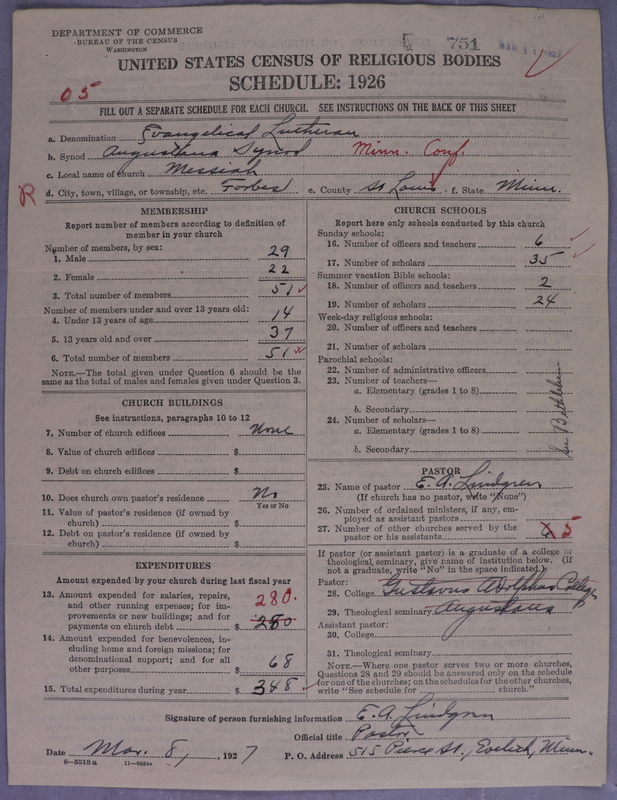 DEPARTMENT OF COMMERCE
BUREAU OF THE CENSUS
WASHINGTON
751
UNITED STATES CENSUS OF RELIGIOUS BODIES
SCHEDULE: 1926
05
FILL OUT A SEPARATE SCHEDULE FOR EACH CHURCH. SEE INSTRUCTIONS ON THE BACK OF THIS SHEET
a. Denomination Evangelical Lutheran
b. Synod Augustana Synod Minn. Conf.
c. Local name of church Messiah
R
d. City, town, village, or township, etc. Forbes e. County St Louis f. State Minn.
MEMBERSHIP
Report number of members according to definition of
member in your church
Number of members, by sex:
1. Male 29
2. Female 22
3. Total number of members 51
Number of members under and over 13 years old:
4. Under 13 years of age 14
5. 13 years old and over 37
6. Total number of members 51
NOTE.—The total given under Question 6 should be
same as the total of males and females given under Question 3.
CHURCH BUILDINGS
See instructions, paragraphs 10 to 12
7. Number of church edifices None
8. Value of church edifices $
9. Debt on church edifices $
10. Does church own pastor's residence No
Yes or No
11. Value of pastor's residence (if owned by
church) $
12. Debt on pastor's residence (if owned by
church) $
EXPENDITURES
Amount expended by your church during last fiscal year
13. Amount expended for salaries, repairs,
and other running expenses; for im-
provements or new buildings; and for
payments on church debt $ 280 280.
14. Amount expended for benevolences, in-
cluding home and foreign missions; for
denominational support; and for all
other purposes 68
15. Total expenditures during year $ 348
CHURCH SCHOOLS
Report here only schools conducted by this church
Sunday schools:
16. Number of officers and teachers 6
17. Number of scholars 35
Summer vacation Bible schools:
18. Number of officers and teachers 2
19. Number of scholars 24
Week-day religious schools:
20. Number of officers and teachers
21. Number of scholars
Parochial schools:
22. Number of administrative officers
23. Number of teachers—
a. Elementary (grades 1 to 8)
b. Secondary
24. Number of scholars—
a. Elementary (grades 1 to 8)
b. Secondary
See Bethlehem
PASTOR
25. Name of pastor E. A. Lindgren
(If church has no pastor, write "None")
26. Number of ordained ministers, if any, em-
ployed as assistant pastors
27. Number of other churches served by the
pastor or his assistants 5
If pastor (or assistant pastor) is a graduate of a college or
theological seminary, give name of institution below. (If
not a graduate, write "No" in the space indicated.)
Pastor:
28. College Gustavus Adolphus College
29. Theological seminary Augustana
Assistant pastor:
30. College
31. Theological seminary
NOTE.—Where one pastor serves two or more churches,
Questions 28 and 29 should be answered only on the schedule
for one of the churches; on the schedules for the other churches,
write "See schedule for church."
Signature of person furnishing information E. A. Lindgren
Official title Pastor
Date Mar. 8, , 1927 P. O. Address 515 Pierce St., Eveleth, Minn.
8—5518a